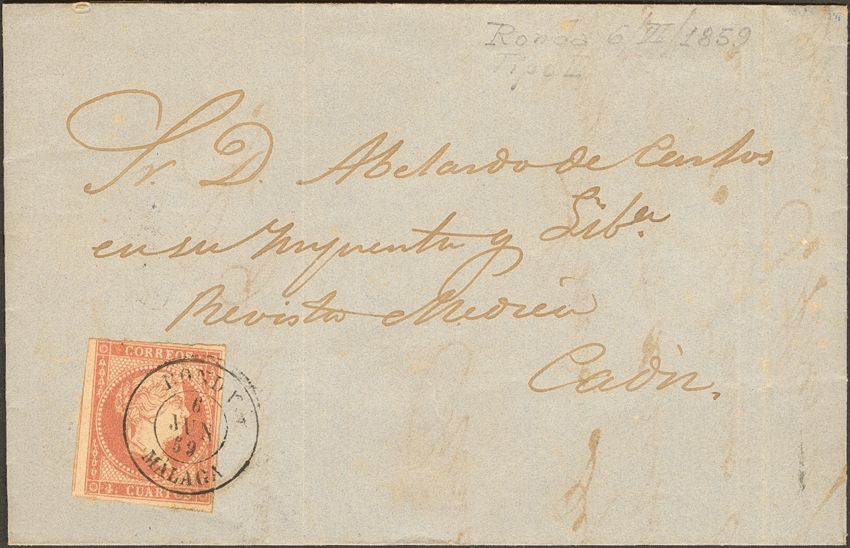 Ronda 6/VI/1859
Tipo II
Sr. D. Abelardo de Carlos
en su Imprenta y Libª.
Revista Médica
Cadiz.
CORREOS
RONDA
6
JUN
59
MALAGA
4. CUARTOS